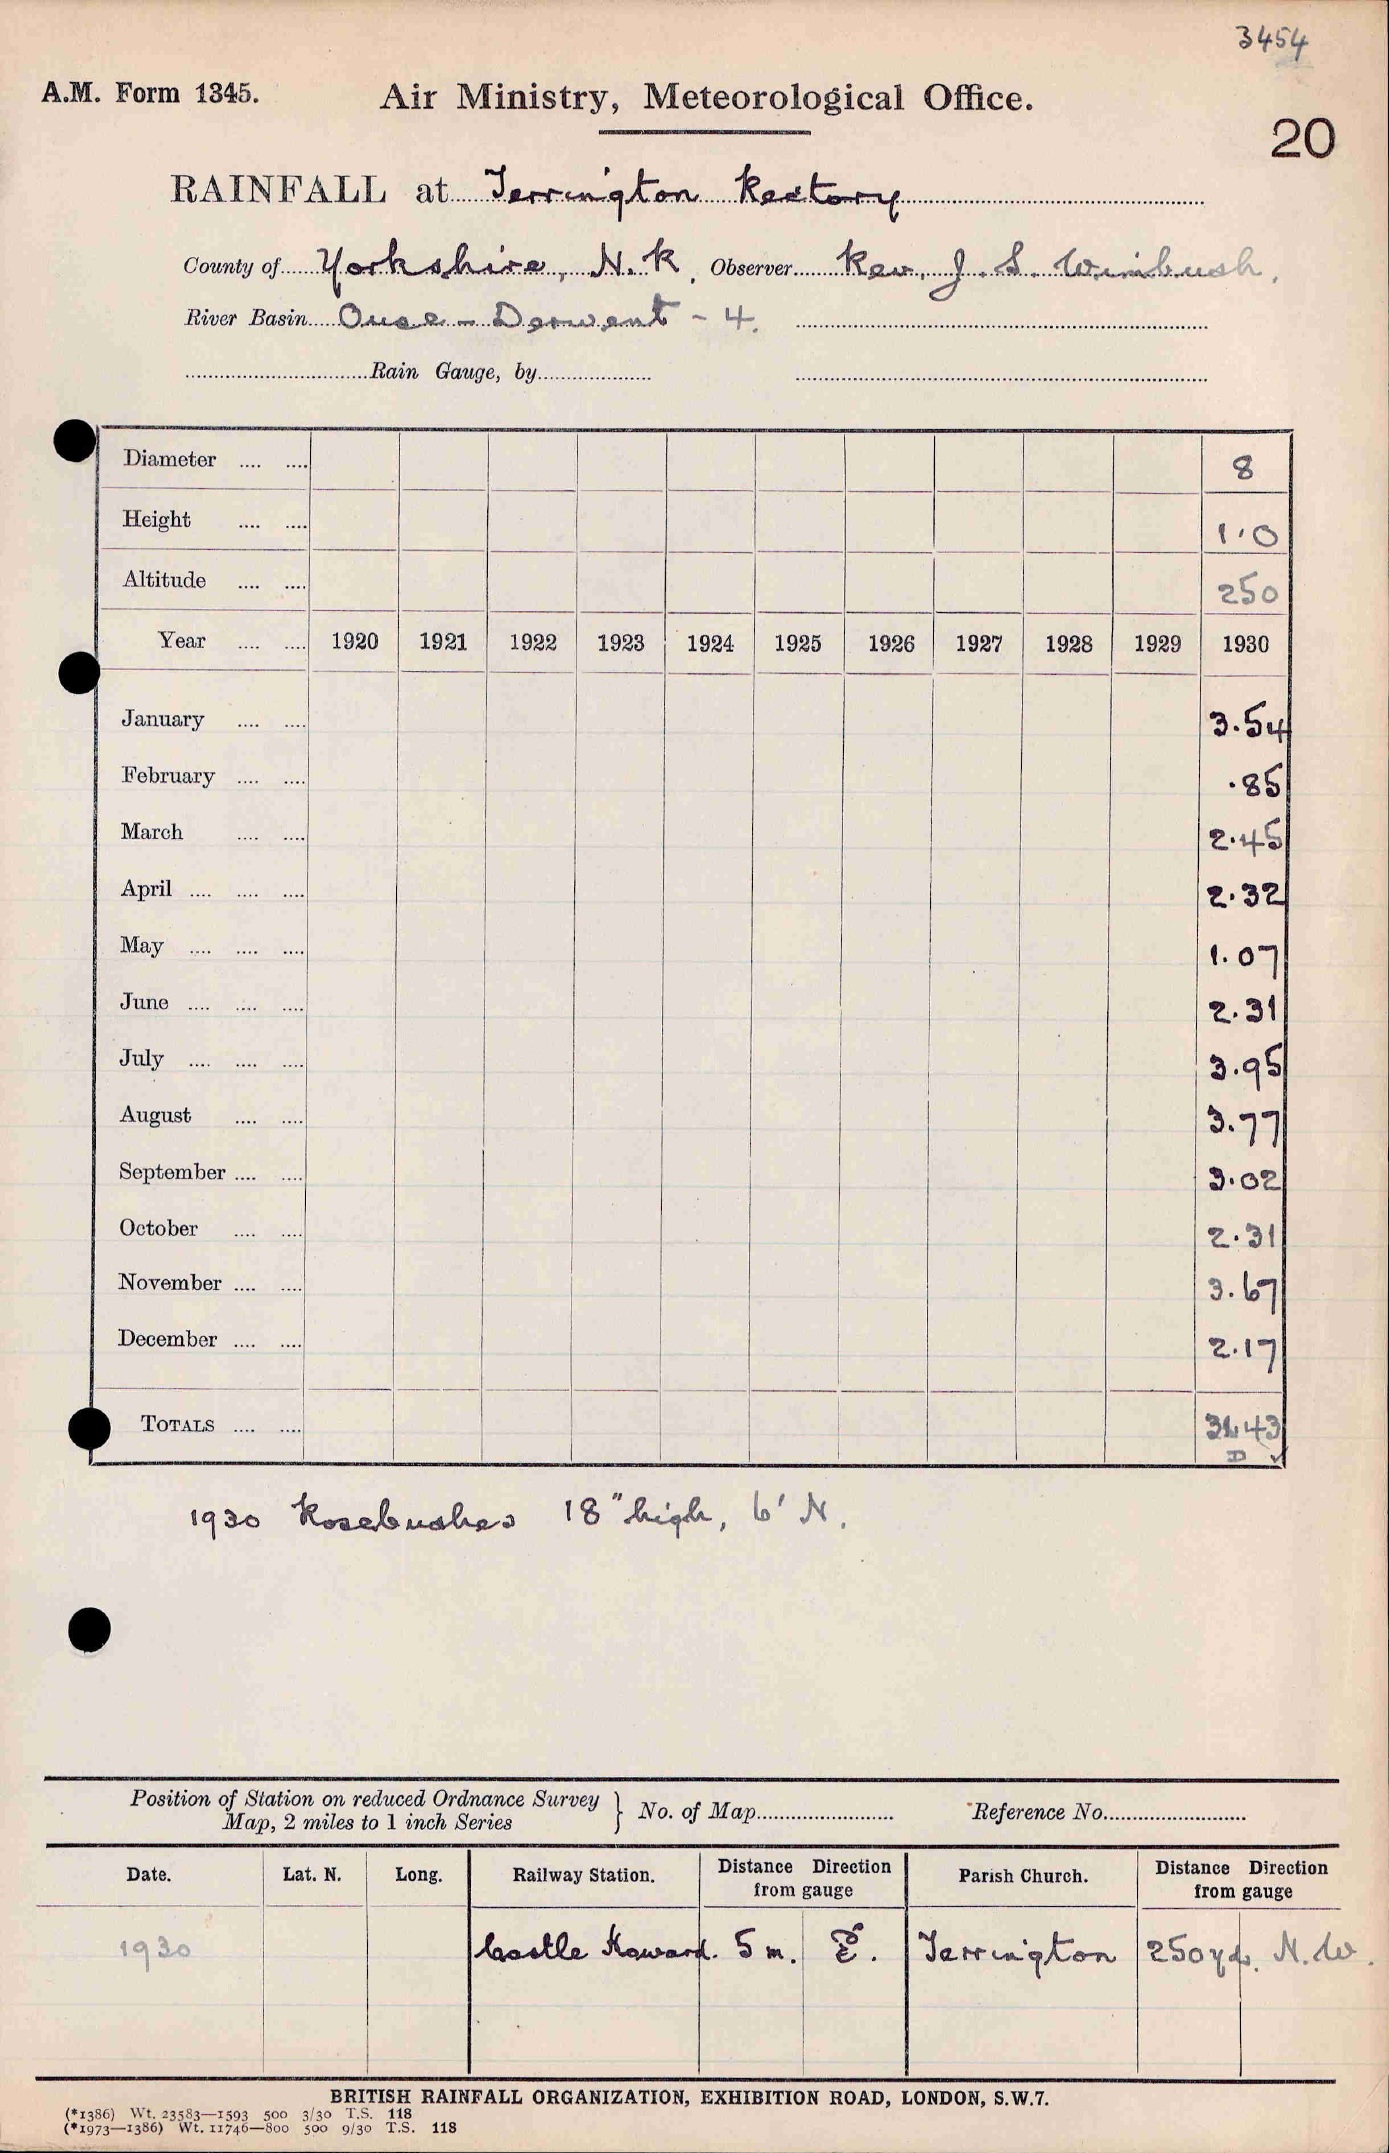 3454
A.M. Form 1345.
Air Ministry, Meteorological Office.
20
RAINFALL at Terrington Rectory
County of Yorkshire, N.R. Observer Rev. J. S. Wimbush.
River Basin Ouse - Derwent - 4.
Rain Gauge, by
Diameter .... .... 8
Height .... .... 1.0
Altitude .... .... 250
Year .... .... 1920 1921 1922 1923 1924 1925 1926 1927 1928 1929 1930
January .... .... 3.54
February .... .... .85
March .... .... 2.45
April .... .... .... 2.32
May .... .... .... 1.07
June .... .... .... 2.31
July .... .... .... 3.95
August .... .... 3.77
September .... .... 3.02
October .... .... 2.31
November .... .... 3.67
December .... .... 2.17
TOTALS .... .... 31.43
D ✓
1930 Rosebushes 18" high, 6' N.
Position of Station on reduced Ordnance Survey
Map, 2 miles to 1 inch Series } No. of Map Reference No.
Date. Lat. N. Long. Railway Station. Distance Direction from gauge Parish Church. Distance Direction from gauge
1930 Castle Howard. 5 m. E. Terrington 250 yds. N.W.
BRITISH RAINFALL ORGANIZATION, EXHIBITION ROAD, LONDON, S.W.7.
(*1386) Wt. 23583—1593 500 3/30 T.S. 118
(*1973—1386) Wt. 11746—800 500 9/30 T.S. 118